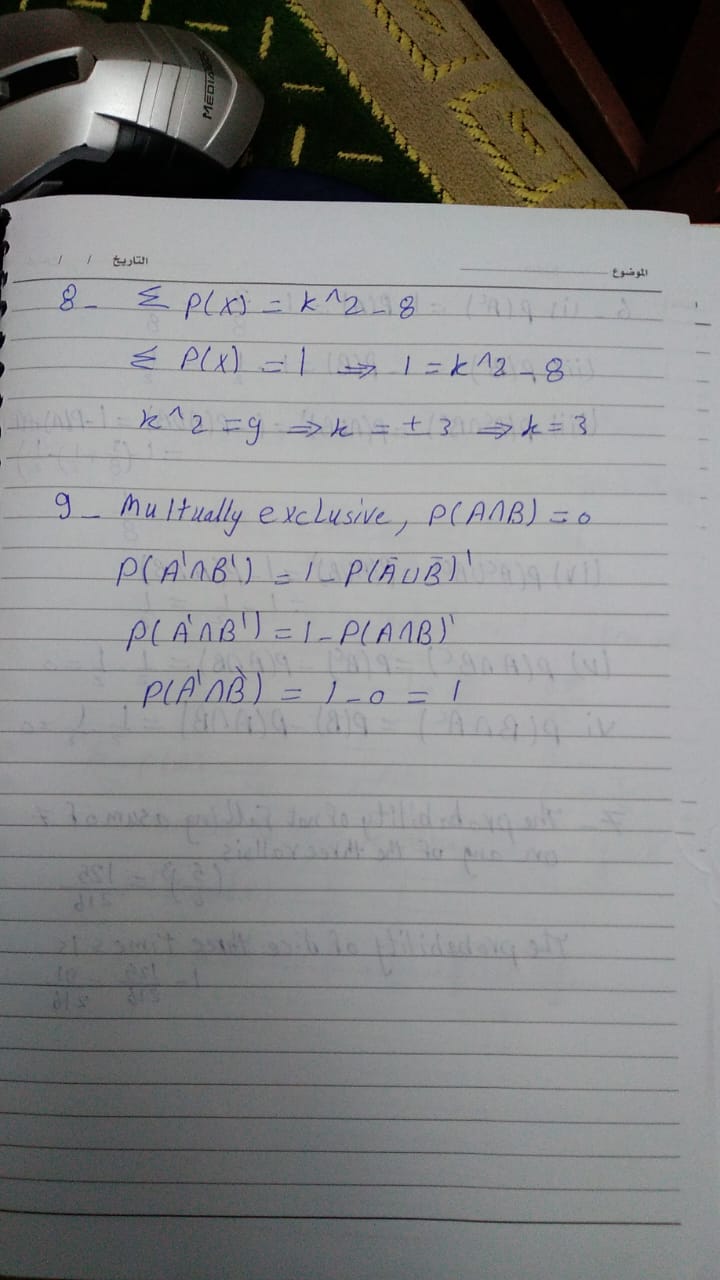 MEDIA
التاريخ / /
الموضوع
8- Σ P(X) = k^2 - 8
Σ P(X) = 1 ⇒ 1 = k^2 - 8
k^2 = 9 ⇒ k = ± 3 ⇒ k = 3
9- Multually exclusive, P(A∩B) = 0
P(A'∩B') = 1 - P(Ā∪B̄)'
P(A'∩B') = 1 - P(A∩B)'
P(A'∩B') = 1 - 0 = 1